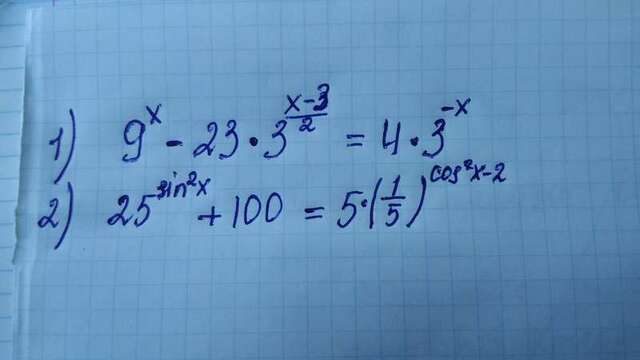 1) 9^x - 23 · 3^((x-3)/2) = 4 · 3^(-x)
2) 25^(sin²x) + 100 = 5 · (1/5)^(cos²x-2)